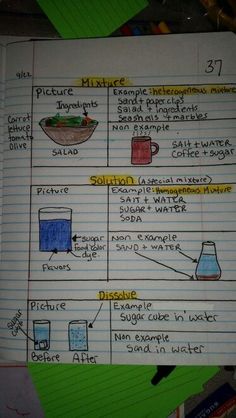 37
9/22
Mixture
Picture
Ingredients
Carrot
lettuce
tomato
olive
SALAD
Example: heterogeneous mixture
Sand + paper clips
Salad + ingredients
Seashells + marbles
Non example
SALT + WATER
Coffee + sugar
Solution (a special mixture)
Picture
sugar
food color
dye
Flavors
Example: Homogeneous Mixture
SALT + WATER
SUGAR + WATER
SODA
Non example
SAND + WATER
Dissolve
Picture
sugar
cube
Before
After
Example
Sugar cube in water
Non example
Sand in water